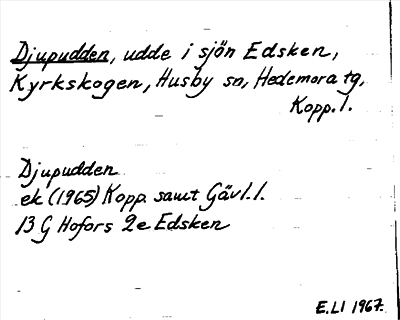 Djupudden, udde i sjön Edsken,
Kyrkskogen, Husby sn, Hedemora tg,
Kopp. l.
Djupudden
ek (1965) Kopp. samt Gävl. l.
13 G Hofors 2e Edsken
E.LI 1967.